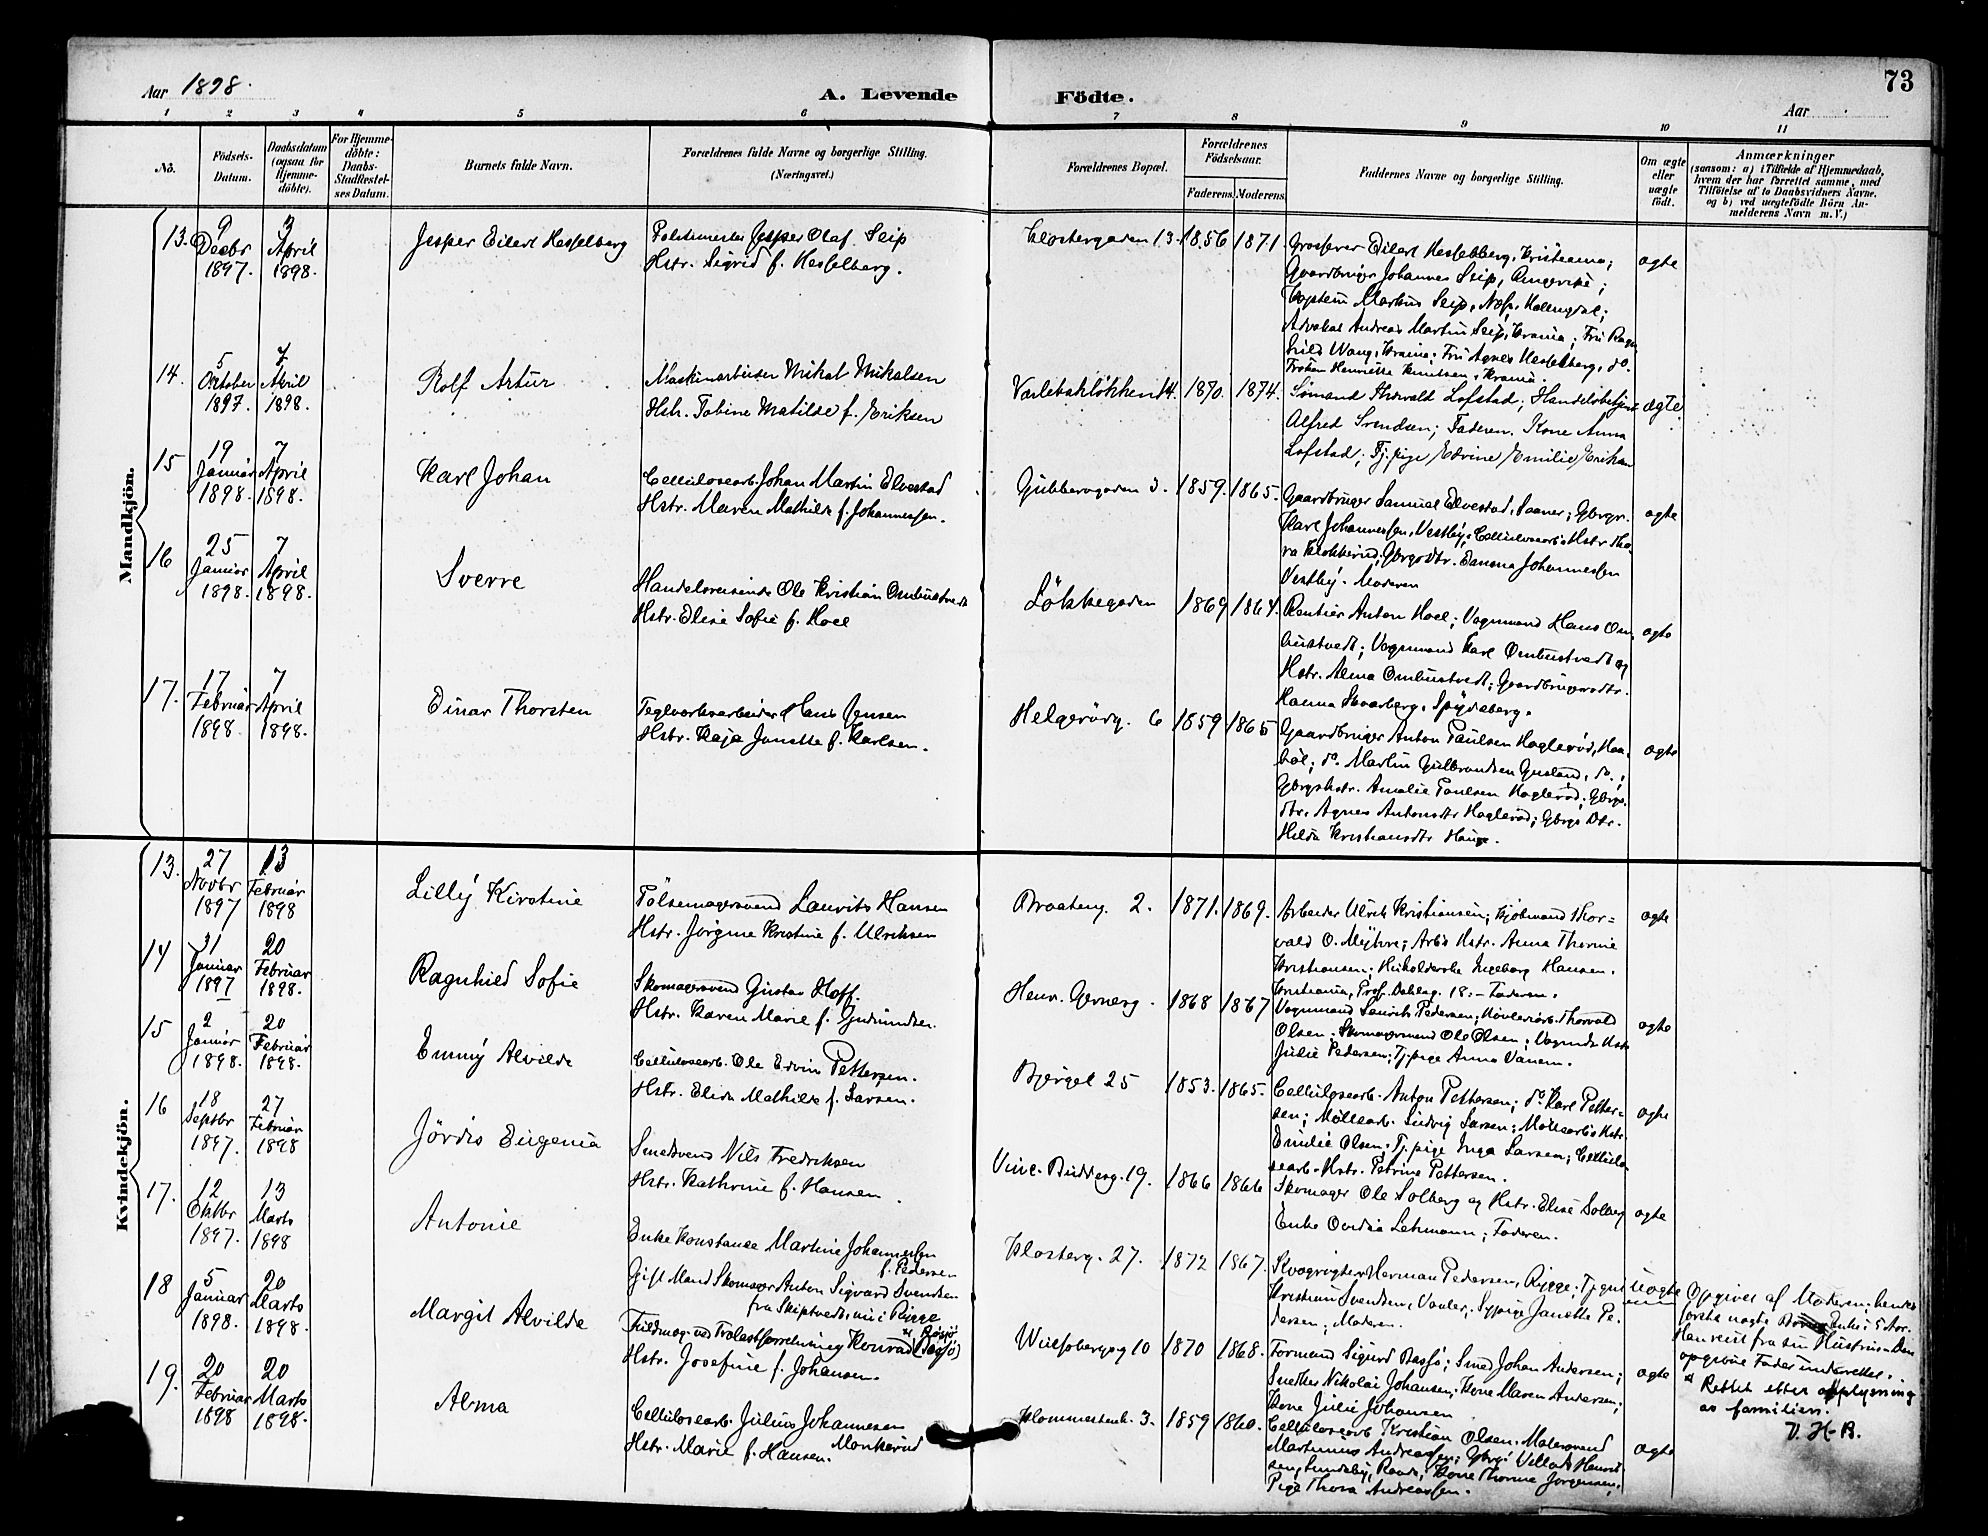 73
Aar 1898.
A. Levende Födte.
Aar
1 2 3 4 5 6 7 8 9 10 11
No.
Födsels-Datum.
Daabsdatum (ogsaa for Hjemme-döbte).
For Hjemme-döbte: Daabs-Stadfæstel-ses Datum.
Barnets fulde Navn.
Forældrenes fulde Navne og borgerlige Stilling.
(Næringsvei.)
Forældrenes Bopæl.
Forældrenes Födselsaar.
Faderens Moderens
Faddernes Navne og borgerlige Stilling.
Om ægte eller uægte födt.
Anmærkninger
(saasom: a) i Tilfælde af Hjemmedaab, hvem der har forrettet samme, med Tilföielse af to Daabsvidners Navne. og b) ved uægtefödte Börn Anmelderens Navn m. V.)
Mandkjön.
13. 9 Decbr 1897. 3 April 1898.
Jesper Eilert Hesselberg
Politimester Jesper Olaf Seip
Hstr. Sigrid f. Hesselberg.
Klostergaden 13. 1856 1871.
Grosserer Eilert Hesselberg, Kristiania;
Gaardbruger Johannes Seip, Ringerike;
Kaptein Markus Seip, Næs, Hallingdal;
Advokat Andreas Martin Seip, Krania; Fru Ragn-
hild Wang, Krania; Fru Agnes Hesselberg, do.
Fröken Henriette Knutsen, Krania.
ægte
14. 5 Oktober 1897. 7 April 1898.
Rolf Artur
Maskinarbeider Mikal Mikalsen
Hstr. Tobine Matilde f. Eriksen
Varlebaklökken 14. 1870. 1874.
Sömand Thorvald Lofstad; Handelsbetjent
Alfred Svendsen; Faderen. Kone Anna
Lofstad; Tj. pige Edvine Emilie Eriksen
ægte
15 19 Januar 1898. 7 April 1898.
Karl Johan
Cellulosearb. Johan Martin Elvestad
Hstr. Maren Mathilde f. Johannessen.
Gubberogaden 3. 1859. 1865.
Gaardbruger Samuel Elvestad, Saaner; Gbrgr.
Karl Johannessen, Vestby; Cellulosearb's Hstr. Tho-
ra Klokkerud; Gbrgs Dtr. Emma Johannessen
Vestby. Moderen
ægte
16 25 Januar 1898. 7 April 1898.
Sverre
Handelsreisende Ole Kristian Ombustvedt
Hstr. Elise Sofie f. Hoel
Lökkegaden 1869 1864.
Rentier Anton Hoel; Vognmand Hans Om-
bustvedt; Vognmand Karl Ombustvedt og
Hstr. Alma Ombustvedt; Gaardbrugersdtr.
Hanna Skaarberg, Spydeberg.
ægte
17. 17 Februar 1898. 7 April 1898.
Einar Thorsten
Teglverksarbeider Hans Jensen
Hstr. Kaja Janette f. Karlsen.
Helgerödg. 6 1859 1865
Gaardbruger Anton Paulsen Hagleröd, Haa-
böl; do. Martin Gulbrandsen, do.;
Gbrgshstr. Amalie Paulsen Hagleröd; Gbrgs.
dtr. Agnes Antonsdtr Hagleröd; Gbrgs Dtr.
Hilda Kristiansdtr Hauge.
ægte
Kvindekjön.
13. 27 Novbr 1897 13 Februar 1898
Lilly Kirstine
Pölsemagersvend Laurits Hansen
Hstr. Jörgine Kristine f. Ulriksen
Braateng. 2. 1871. 1869.
Arbeider Ulrik Kristiansen; Kjöbmand Thor-
vald O. Myhre; Arb's Hstr. Anna Thorine
Kristiansen; Ingeborg Hansen.
Kristiania, Prof. Dahlsg. 18. - Faderen.
ægte
14 31 Januar 1897 20 Februar 1898.
Ragnhild Sofie
Skomagersvend Gustav Hoff.
Hstr. Karen Marie f. Gudmundsen.
Henr. Gernersg. 1868 1867
Vognmand Laurits Pedersen; Thorvald
Olsen. Skomagersvend Ole Olsen; Vognmds Hstr
Julie Pedersen; Tj. pige Anna Vanem.
ægte
15 2 Januar 1898. 20 Februar 1898.
Emmy Alvilde
Cellulosearb. Ole Edvin Pettersen.
Hstr. Elida Mathilde f. Larsen.
Bjerget 25 1853. 1865.
Cellulosearb. Anton Pettersen; do Karl Petter-
sen; Möllearb. Ludvig Larsen; Möllearb's Hstr.
Emilie Olsen; Tj. pige Inga Larsen; Cellulo-
searb. Hstr. Petrine Pettersen.
ægte
16 18 Septbr 1897. 27 Februar 1898
Jördis Eugenia
Smedsvend Nils Fredriksen
Hstr. Kathrine f. Hansen.
Vinc. Buddesg. 19. 1866 1866
Skomager Ole Solberg og Hstr. Elise Solberg
Enke Ovedia Lehmann; Faderen.
ægte
17. 12 Oktbr 1897. 13 Marts 1898
Antonie
Enke Konstanse Martine Johannessen
f. Pedersen
Gift Mand Skomager Anton Sigvard Svendsen
fra Skiptvedt, nu i Rygge
Klosterg. 27. 1872 1867.
Kvægrögter Herman Pedersen, Rygge; Tj. gut
Kristian Svendsen, Vaaler; Sypige Janette Pe-
dersen; Moderen.
uægte
Opgivet af Moderen; hendes
förste uægte Enke i 5 Aar.
Han reist fra sin Hustru. Den
opgivne Fader underrettet.
18 5 Januar 1898. 20 Marts 1898.
Margit Alvilde
Fuldmæg. ved Trælastforretning Konrad (Bassö)
x) Bösjö
Hstr. Josefine f. Johansen.
Wulfsbergsg 10 1870 1868.
Formand Sigurd Bassö; Smed Johan Andersen;
Snedker Nikolai Johansen; Kone Maren Andersen;
Kone Julie Johansen
ægte
x) Rettet etter oplysning
av familien.
V. H-B.
19. 20 Februar 1898 20 Marts 1898.
Alma
Cellulosearb. Julius Johannesen
Monkerud
Hstr. Marie f. Hansen.
Blommestenb. 3. 1859 1860.
Cellulosearb. Kristian Olsen. Malersvend
Martinius Andreassen; Gbrgr.
Kone Thorine Jörgensen,
Pige Thora Andreassen.
ægte